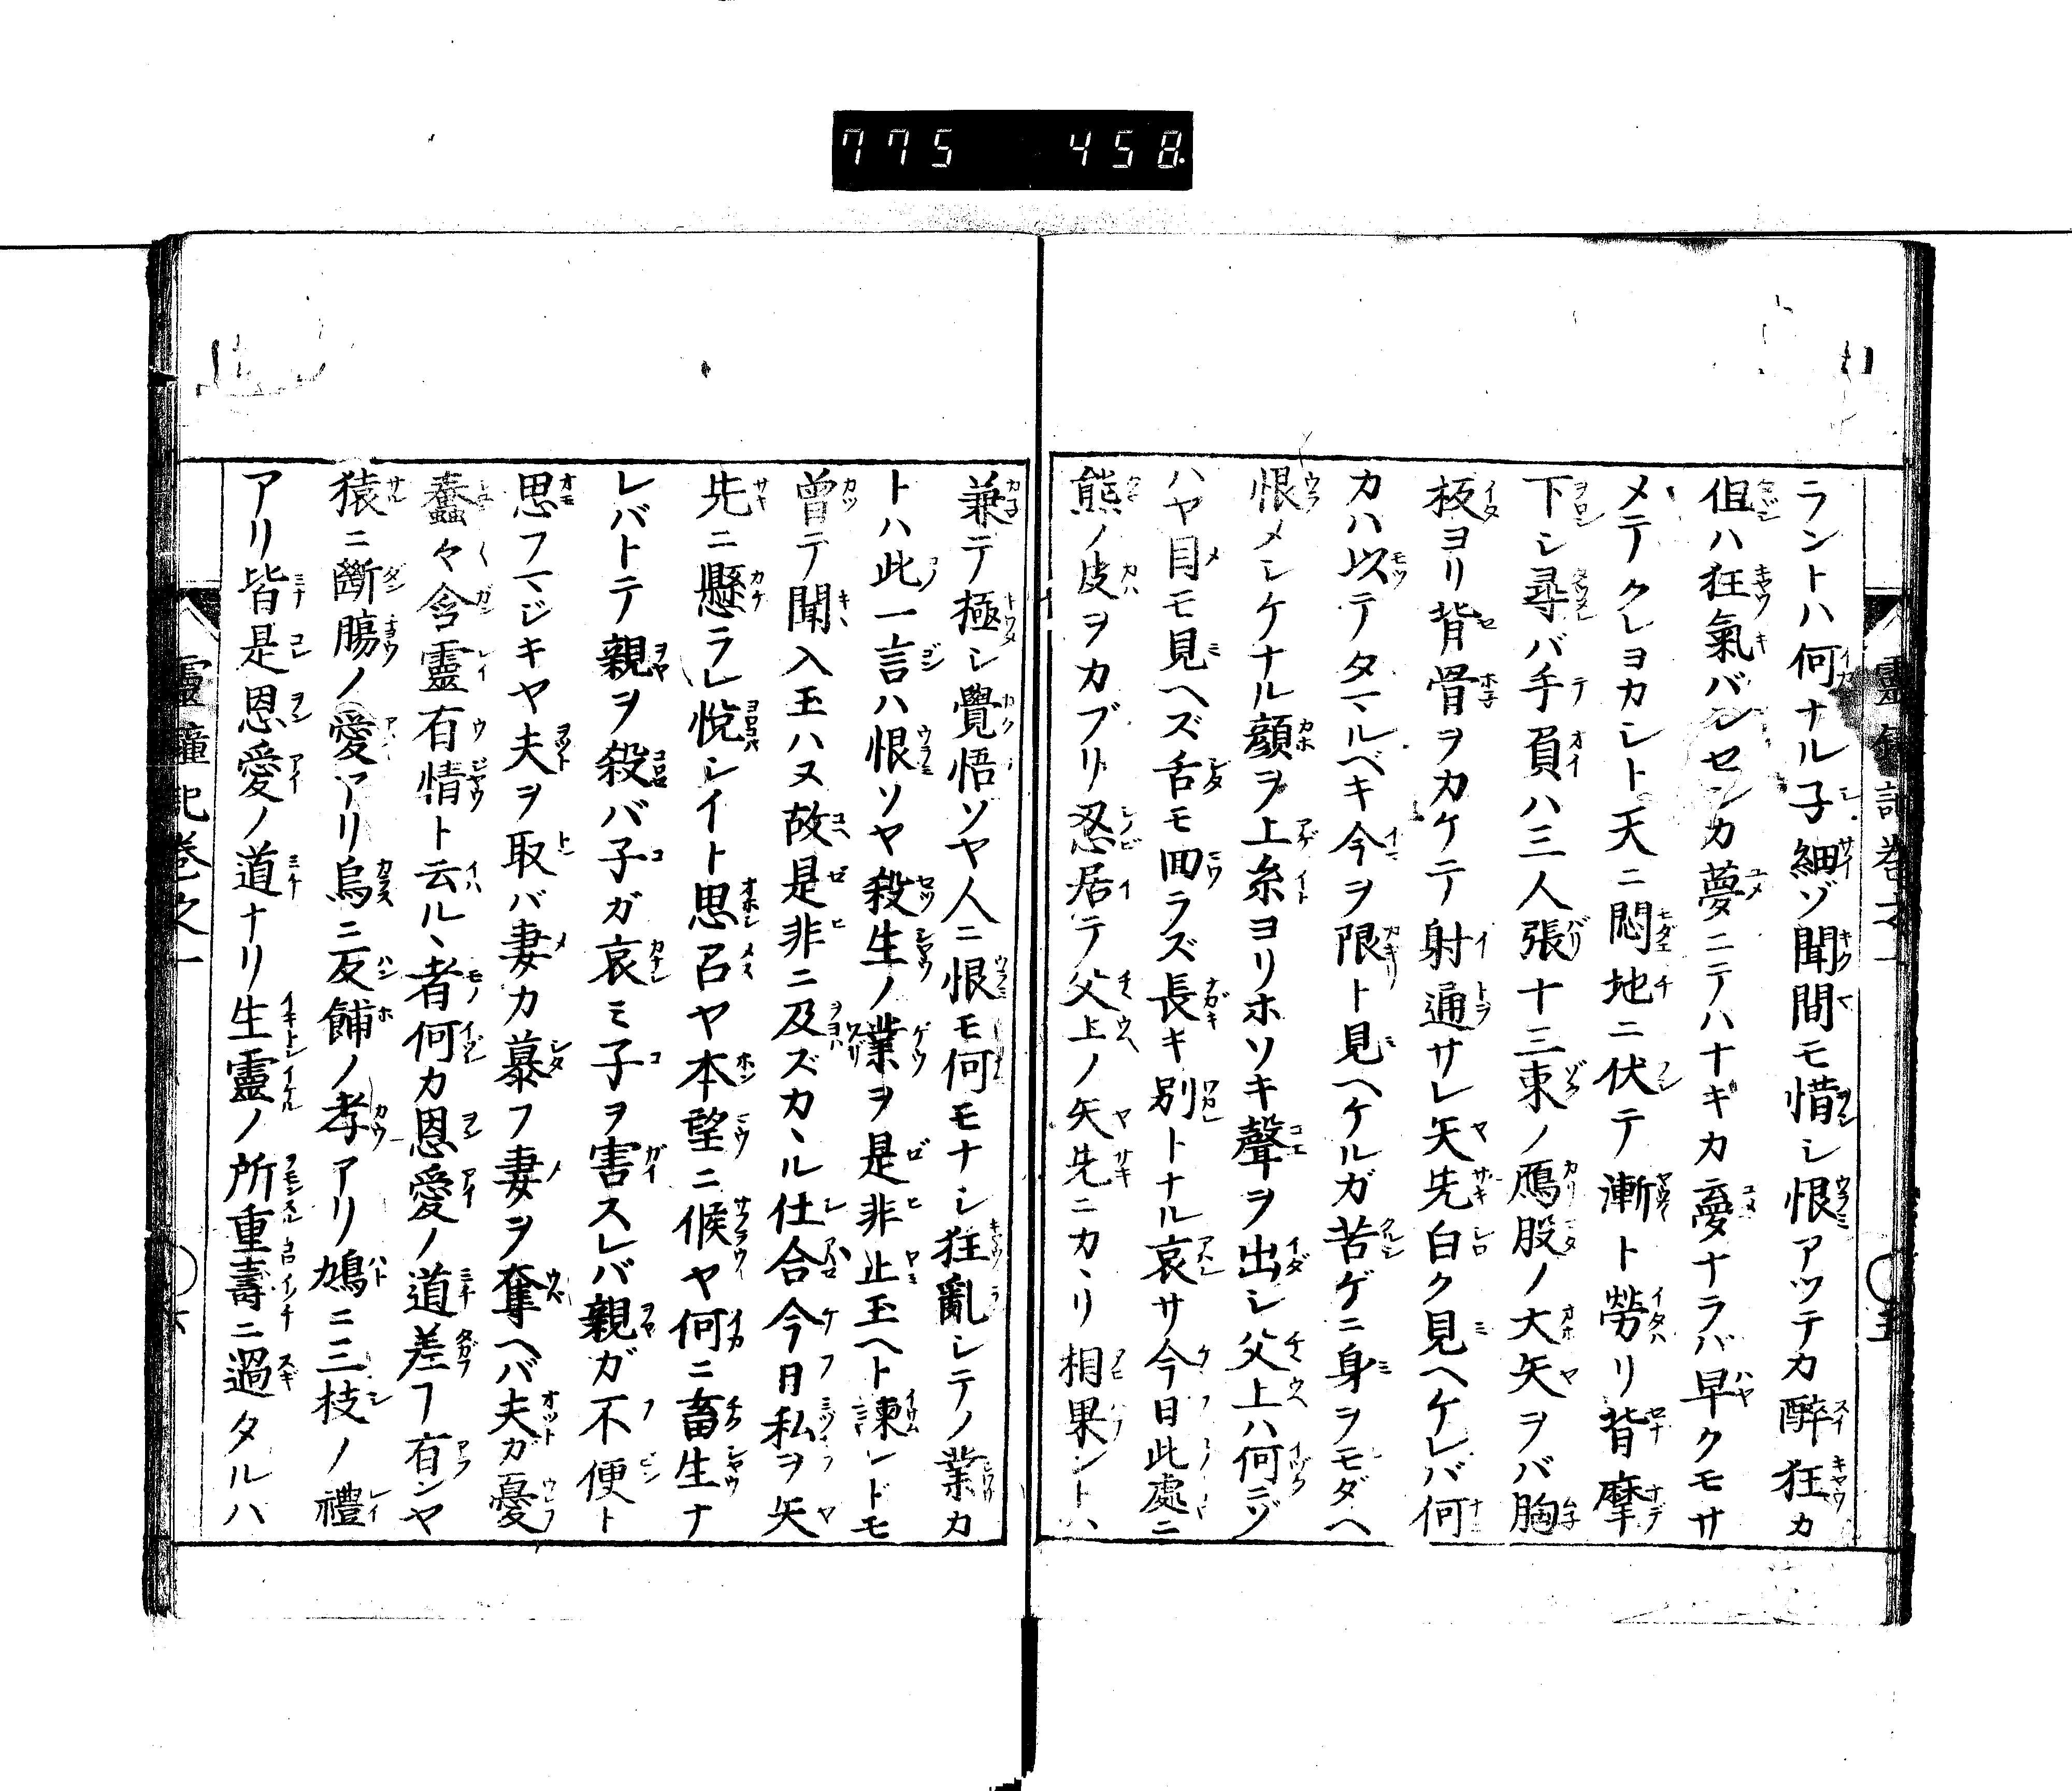 775 458
靈鐘記卷之一 五
ラントハ何ナル子細ゾ聞間モ惜シ恨アツテカ醉狂カ
伹ハ狂氣バシセシカ夢ニテハナキカ夢ナラバ早クモサ
メテクレヨカシト天ニ悶地ニ伏テ漸ト勞リ背摩
下シ尋バ手負ハ三人張十三束ノ鴈股ノ大矢ヲバ胸
板ヨリ背骨ヲカケテ射通サレ矢先白ク見ヘケレバ何
カハ以テタマルベキ今ヲ限ト見ヘケルガ苦ゲニ身ヲモダヘ
恨メシケナル顔ヲ上糸ヨリホソキ聲ヲ出シ父上ハ何ニゾ
ハヤ目モ見ヘズ舌モ回ラズ長キ別トナル哀サ今日此處ニ
熊ノ皮ヲカブリ忍居テ父上ノ矢先ニカヽリ相果ントハ
兼テ極シ覺悟ソヤ人ニ恨モ何モナシ狂亂シテノ業カ
トハ此一言ハ恨ソヤ殺生ノ業ヲ是非止玉ヘト諫レドモ
曾テ聞入玉ハヌ故是非ニ及ズカヽル仕合今日私ヲ矢
先ニ懸ラレ悅シイト思召ヤ本望ニ候ヤ何ニ畜生ナ
レバトテ親ヲ殺バ子ガ哀ミ子ヲ害スレバ親ガ不便ト
思フマジキヤ夫ヲ取バ妻カ慕フ妻ヲ奪ヘバ夫ガ憂
蠢々含靈有情ト云ル丶者何カ恩愛ノ道差フ有ンヤ
猿ニ斷膓ノ愛アリ烏ニ反餔ノ孝アリ鳩ニ三枝ノ禮
アリ皆是恩愛ノ道ナリ生靈ノ所重壽ニ過タルハ
靈鐘記卷之一 六